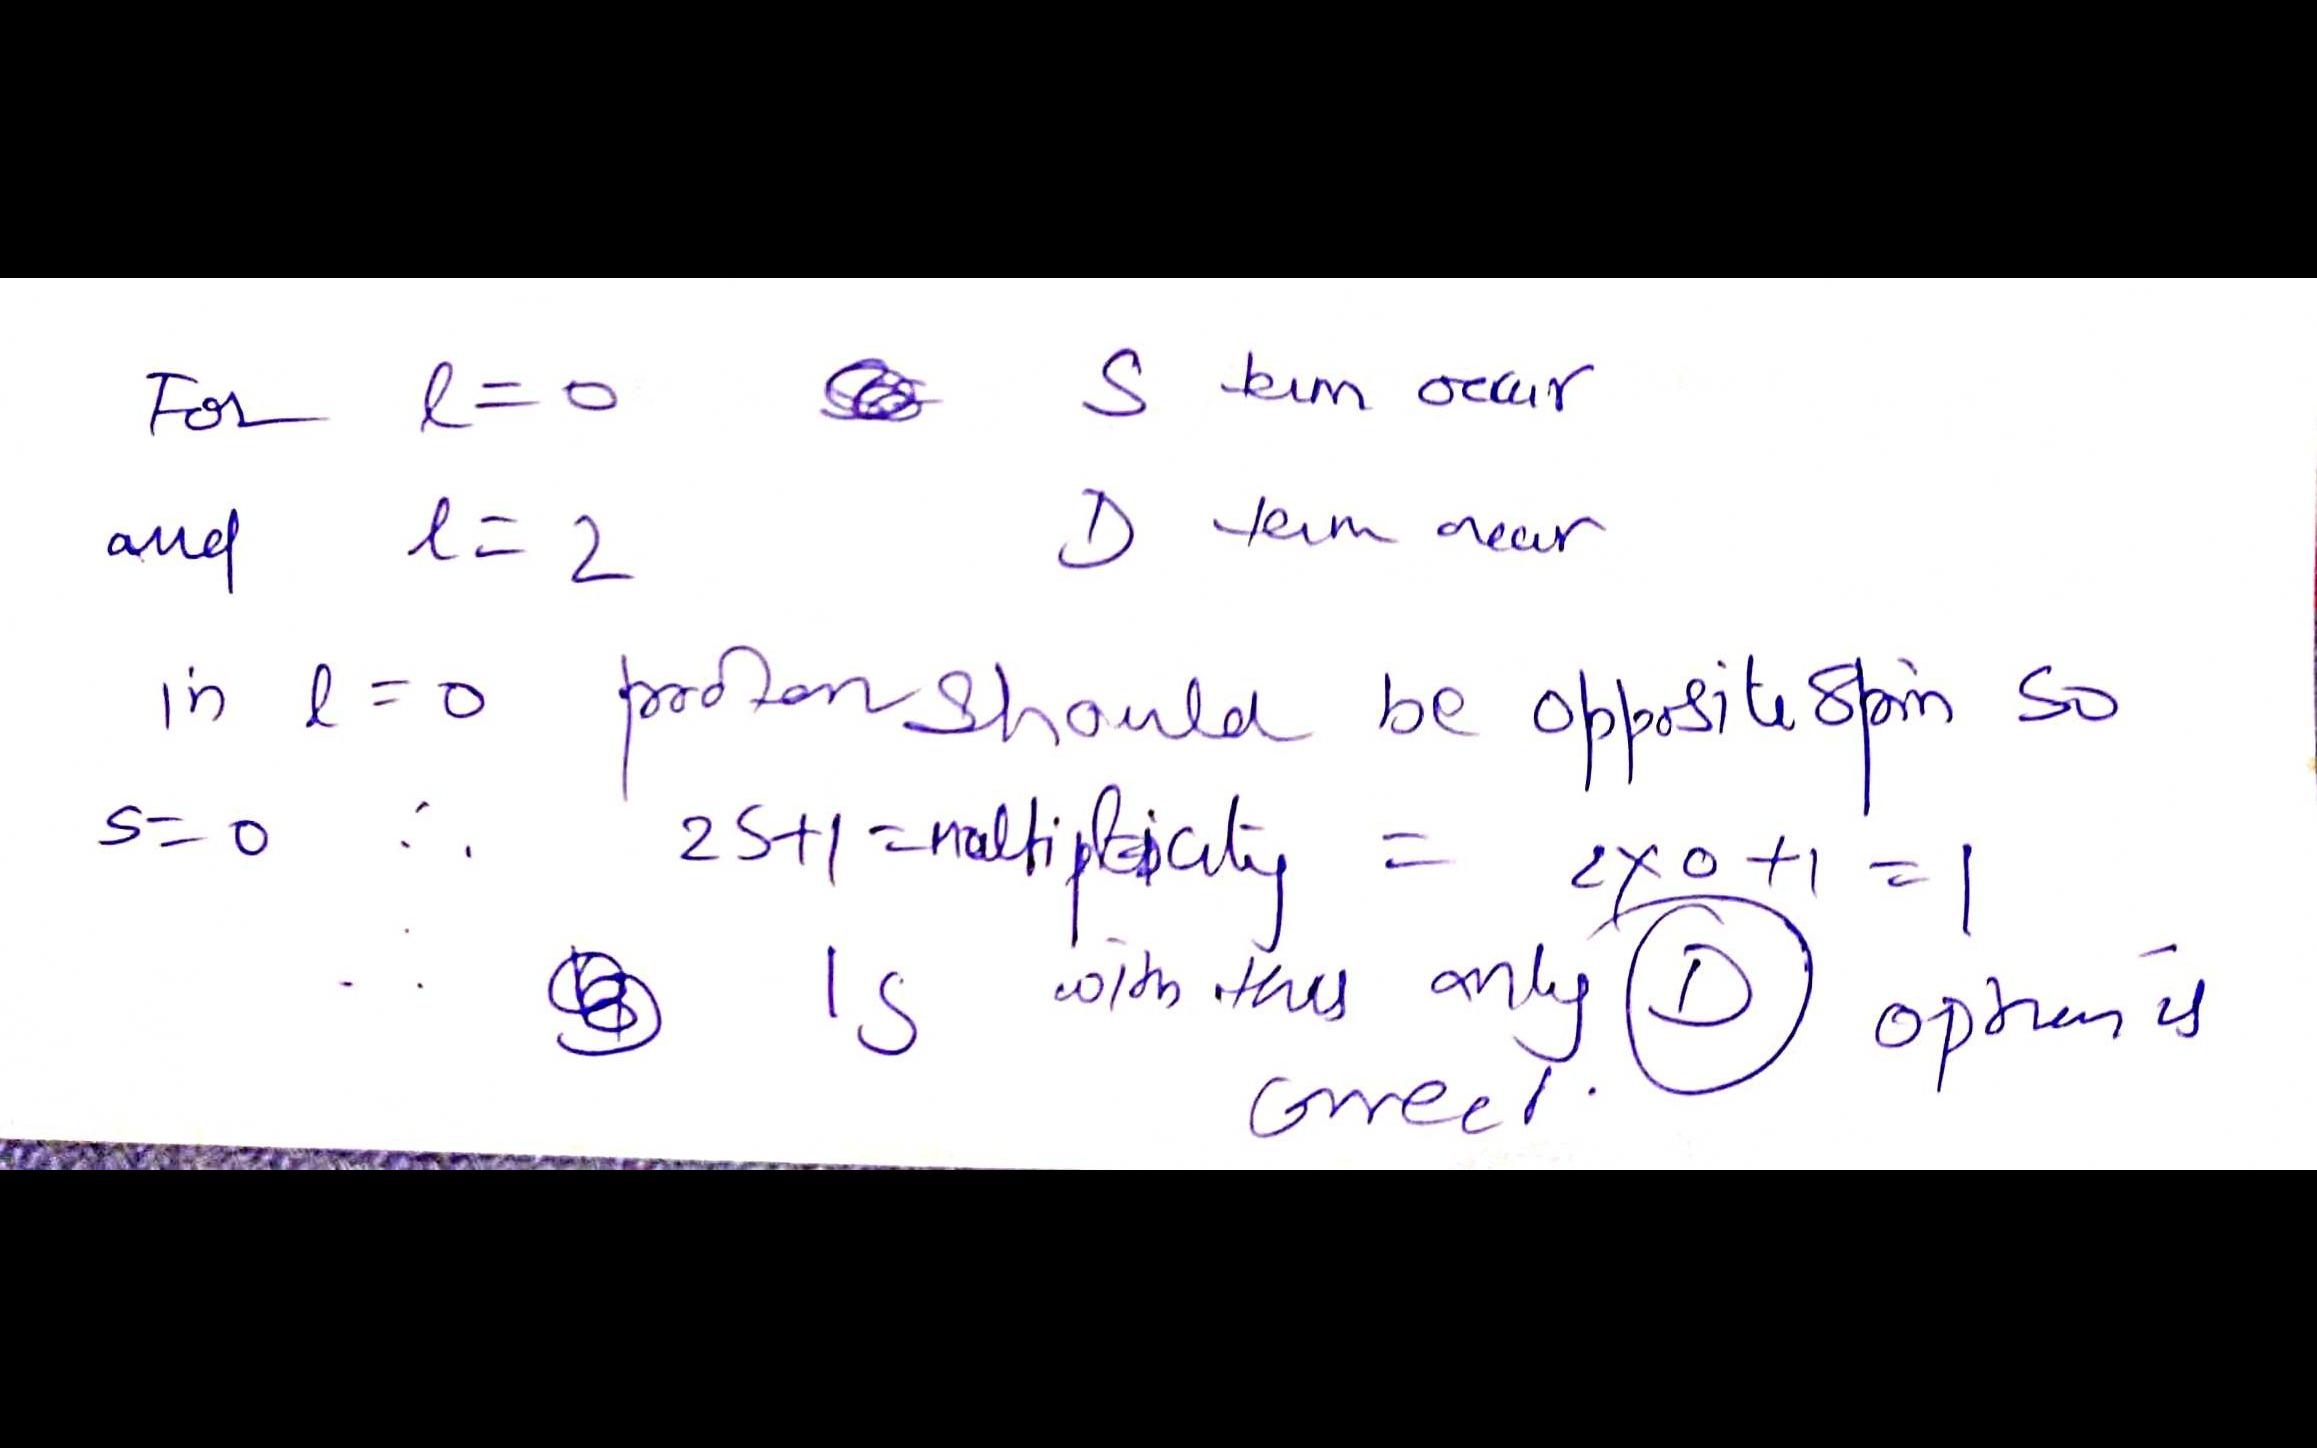 For l=0 S term occur
and l=2 D term occur
in l=0 proton should be opposite spin so
s=0 ∴ 2S+1 = multiplicity = 2×0+1 = 1
∴ 1S with this only D option is
correct.